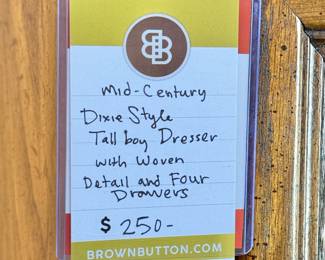 BB
Mid-Century
Dixie Style
Tall boy Dresser
with Woven
Detail and Four
Drawers
$ 250-
BROWNBUTTON.COM